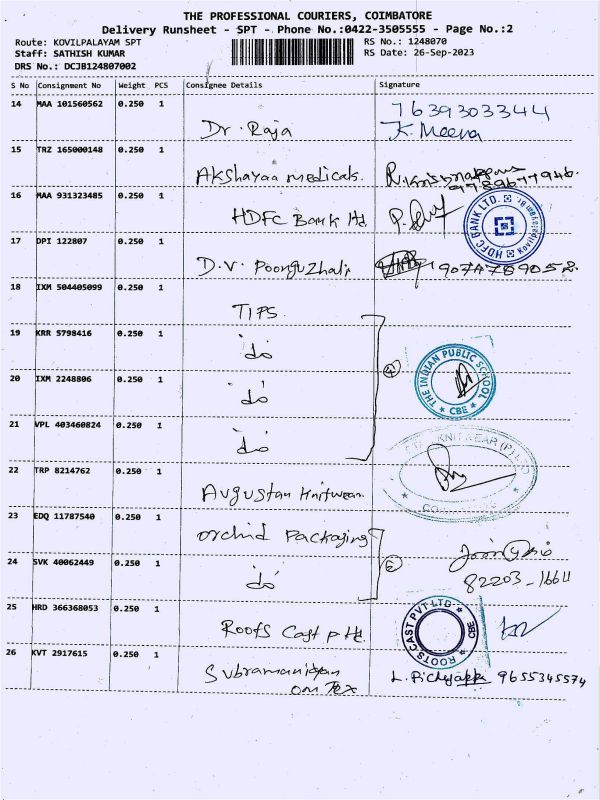 THE PROFESSIONAL COURIERS, COIMBATORE
Delivery Runsheet - SPT - Phone No.:0422-3505555 - Page No.:2
Route: KOVILPALAYAM SPT
Staff: SATHISH KUMAR
DRS No.: DCJB124807002
RS No.: 1248070
RS Date: 26-Sep-2023
S No Consignment No Weight PCS Consignee Details Signature
14 MAA 101560562 0.250 1 7639303344
Dr. Raja K. Meena
15 TRZ 165000148 0.250 1
Akshayaa medicals. 9789677946.
16 MAA 931323485 0.250 1
HDFC Bank ltd HDFC BANK LTD.
17 DPI 122807 0.250 1
D.V. Poonguzhali 9074789052
18 IXM 504405099 0.250 1
TIPS
19 KRR 5798416 0.250 1
do
20 IXM 2248806 0.250 1
do THE INDIAN PUBLIC SCHOOL CBE
21 VPL 403460824 0.250 1
do
22 TRP 8214762 0.250 1
Augustan Knitwear
23 EDQ 11787540 0.250 1
Orchid Packaging
24 SVK 40062449 0.250 1
do 82203-16611
25 HRD 366368053 0.250 1
Roots Cast p ltd. ROOTS CAST PVT LTD CBE
26 KVT 2917615 0.250 1
Subramaniyan L. Pichyappa 9655345574
om Tex